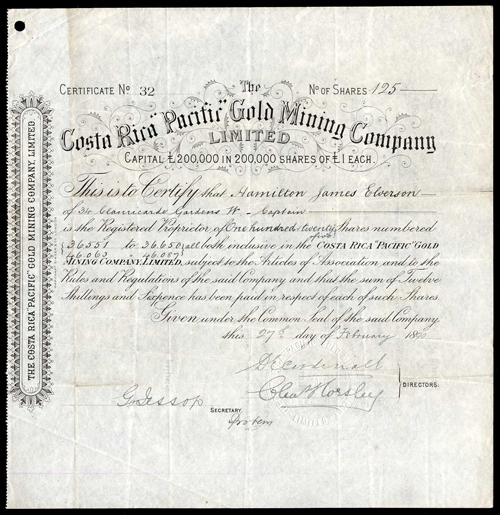 CERTIFICATE No 32
No OF SHARES 125
The
Costa Rica "Pacific" Gold Mining Company
LIMITED
CAPITAL £200,000 IN 200,000 SHARES OF £1 EACH.
This is to Certify that Hamilton James Elverson
of 34 Clanricarde Gardens W. Captain
is the Registered Proprietor of One hundred & twenty five Shares numbered
36551 to 36650 all both inclusive in the COSTA RICA "PACIFIC" GOLD
46063 46087
MINING COMPANY, LIMITED, subject to the Articles of Association and to the
Rules and Regulations of the said Company and that the sum of Twelve
Shillings and Sixpence has been paid in respect of each of such Shares.
Given under the Common Seal of the said Company,
this 27th day of February
DIRECTORS.
Chas Horsley
G Jessop
SECRETARY
pro tem
LIMITED
THE COSTA RICA "PACIFIC" GOLD MINING COMPANY, LIMITED.